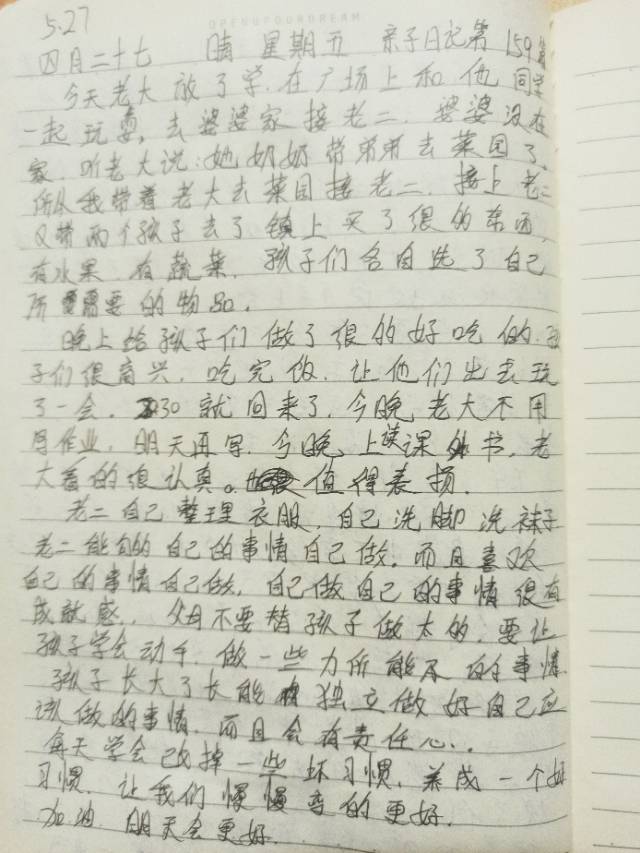 OPENUPYOURDREAM
5.27
四月二十七 晴 星期五 亲子日记第159篇
今天老大放了学.在广场上和他同学
一起玩耍,去婆婆家接老二.婆婆没在
家.听老大说:她奶奶带弟弟去菜园了.
所以我带着老大去菜园接老二.接上老二
又带两个孩子去了镇上买了很的东西,
有水果.有蔬菜.孩子们各自选了自己
所需要的物品.
晚上给孩子们做了很的好吃的.孩
子们很高兴.吃完饭.让他们出去玩
了一会.30就回来了.今晚老大不用
写作业.明天再写.今晚上读课外书.老
大看的很认真。值得表损.
老二自己整理衣服.自己洗脚洗袜子
老二能的自己的事情自己做.而且喜欢
自己的事情自己做.自己做自己的事情很有
成就感.父母不要替孩子做太的.要让
孩子学会动手.做一些力所能及的事情.
孩子长大了长能独立做好自己应
该做的事情.而且会有责任心..
每天学会改掉一些坏习惯.养成一个好
习惯.让我们慢慢变的更好.
加油.明天会更好.